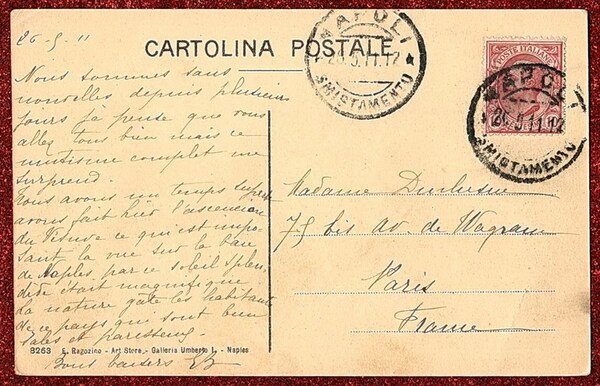 26-5-11
CARTOLINA POSTALE
NAPOLI
26.5.11.17
SMISTAMENTO
POSTE ITALIANE
NAPOLI
26.5.11.17
SMISTAMENTO
Nous sommes sans
nouvelles depuis plusieurs
jours je pense que vous
allez tous bien mais ce
mutisme complet me
surprend.
Nous avons un temps superbe
avons fait hier l'ascension
du Vésuve ce qui est impo
sant la vue sur la baie
de Naples, par ce soleil splen
dide était magnifique
La nature gâte les habitants
de ce pays qui sont bien
sales et paresseux.
Bons baisers
Madame
75 bis av. de Wagram
Paris
France
8263 E. Ragozino - Art Store - Galleria Umberto I. - Naples